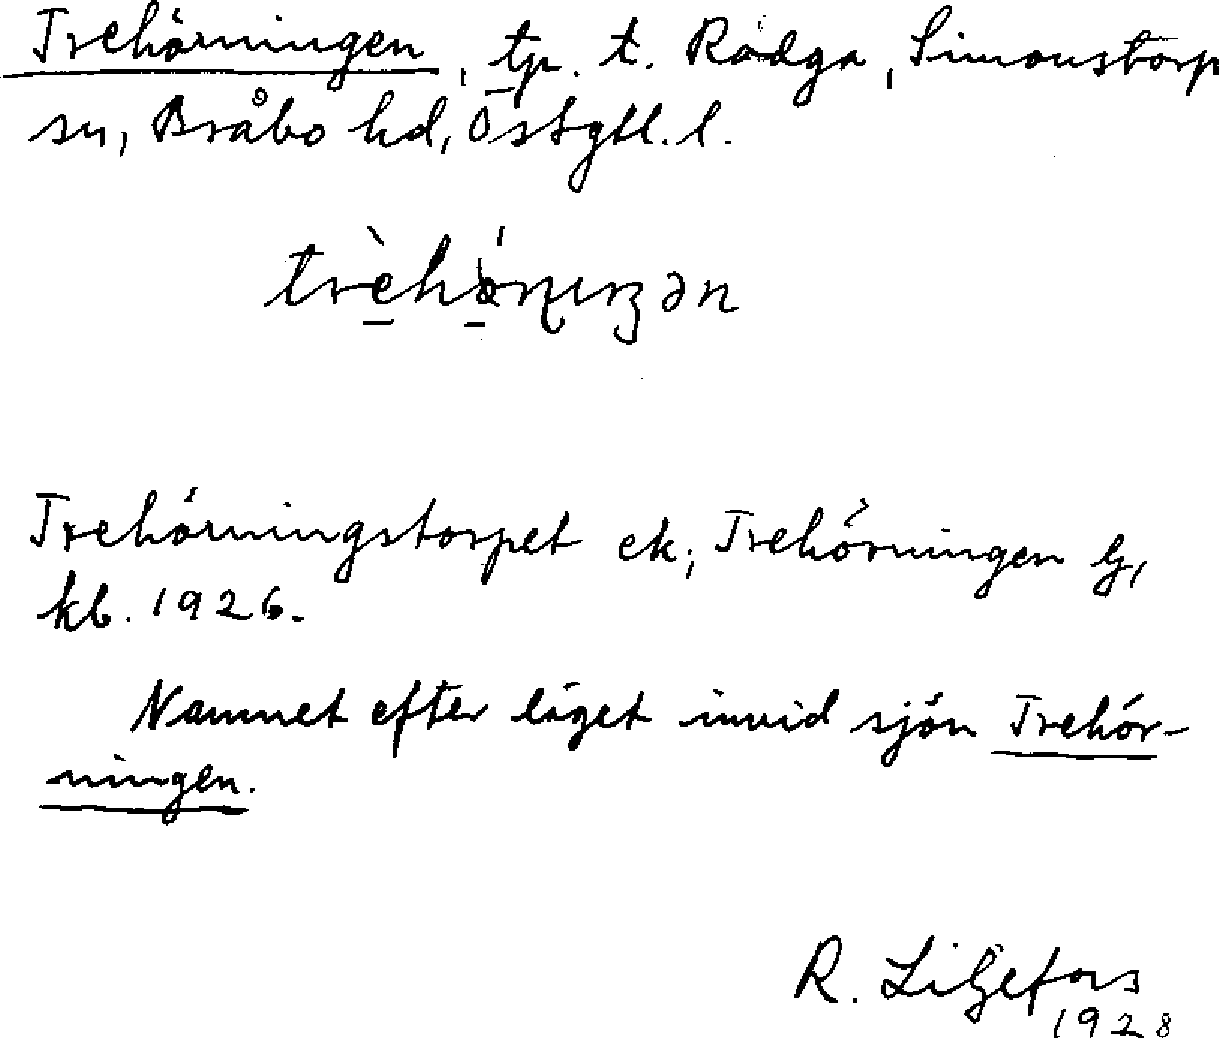 Trehörningen, tp. t. Rodga, Simonstorp
sn, Bråbo hd, Östgtl. l.
trèhö́ɳıŋən
Trehörningstorpet ek; Trehörningen
kb. 1926.
Namnet efter läget invid sjön Trehör-
ningen.
R. Liljefors
1928